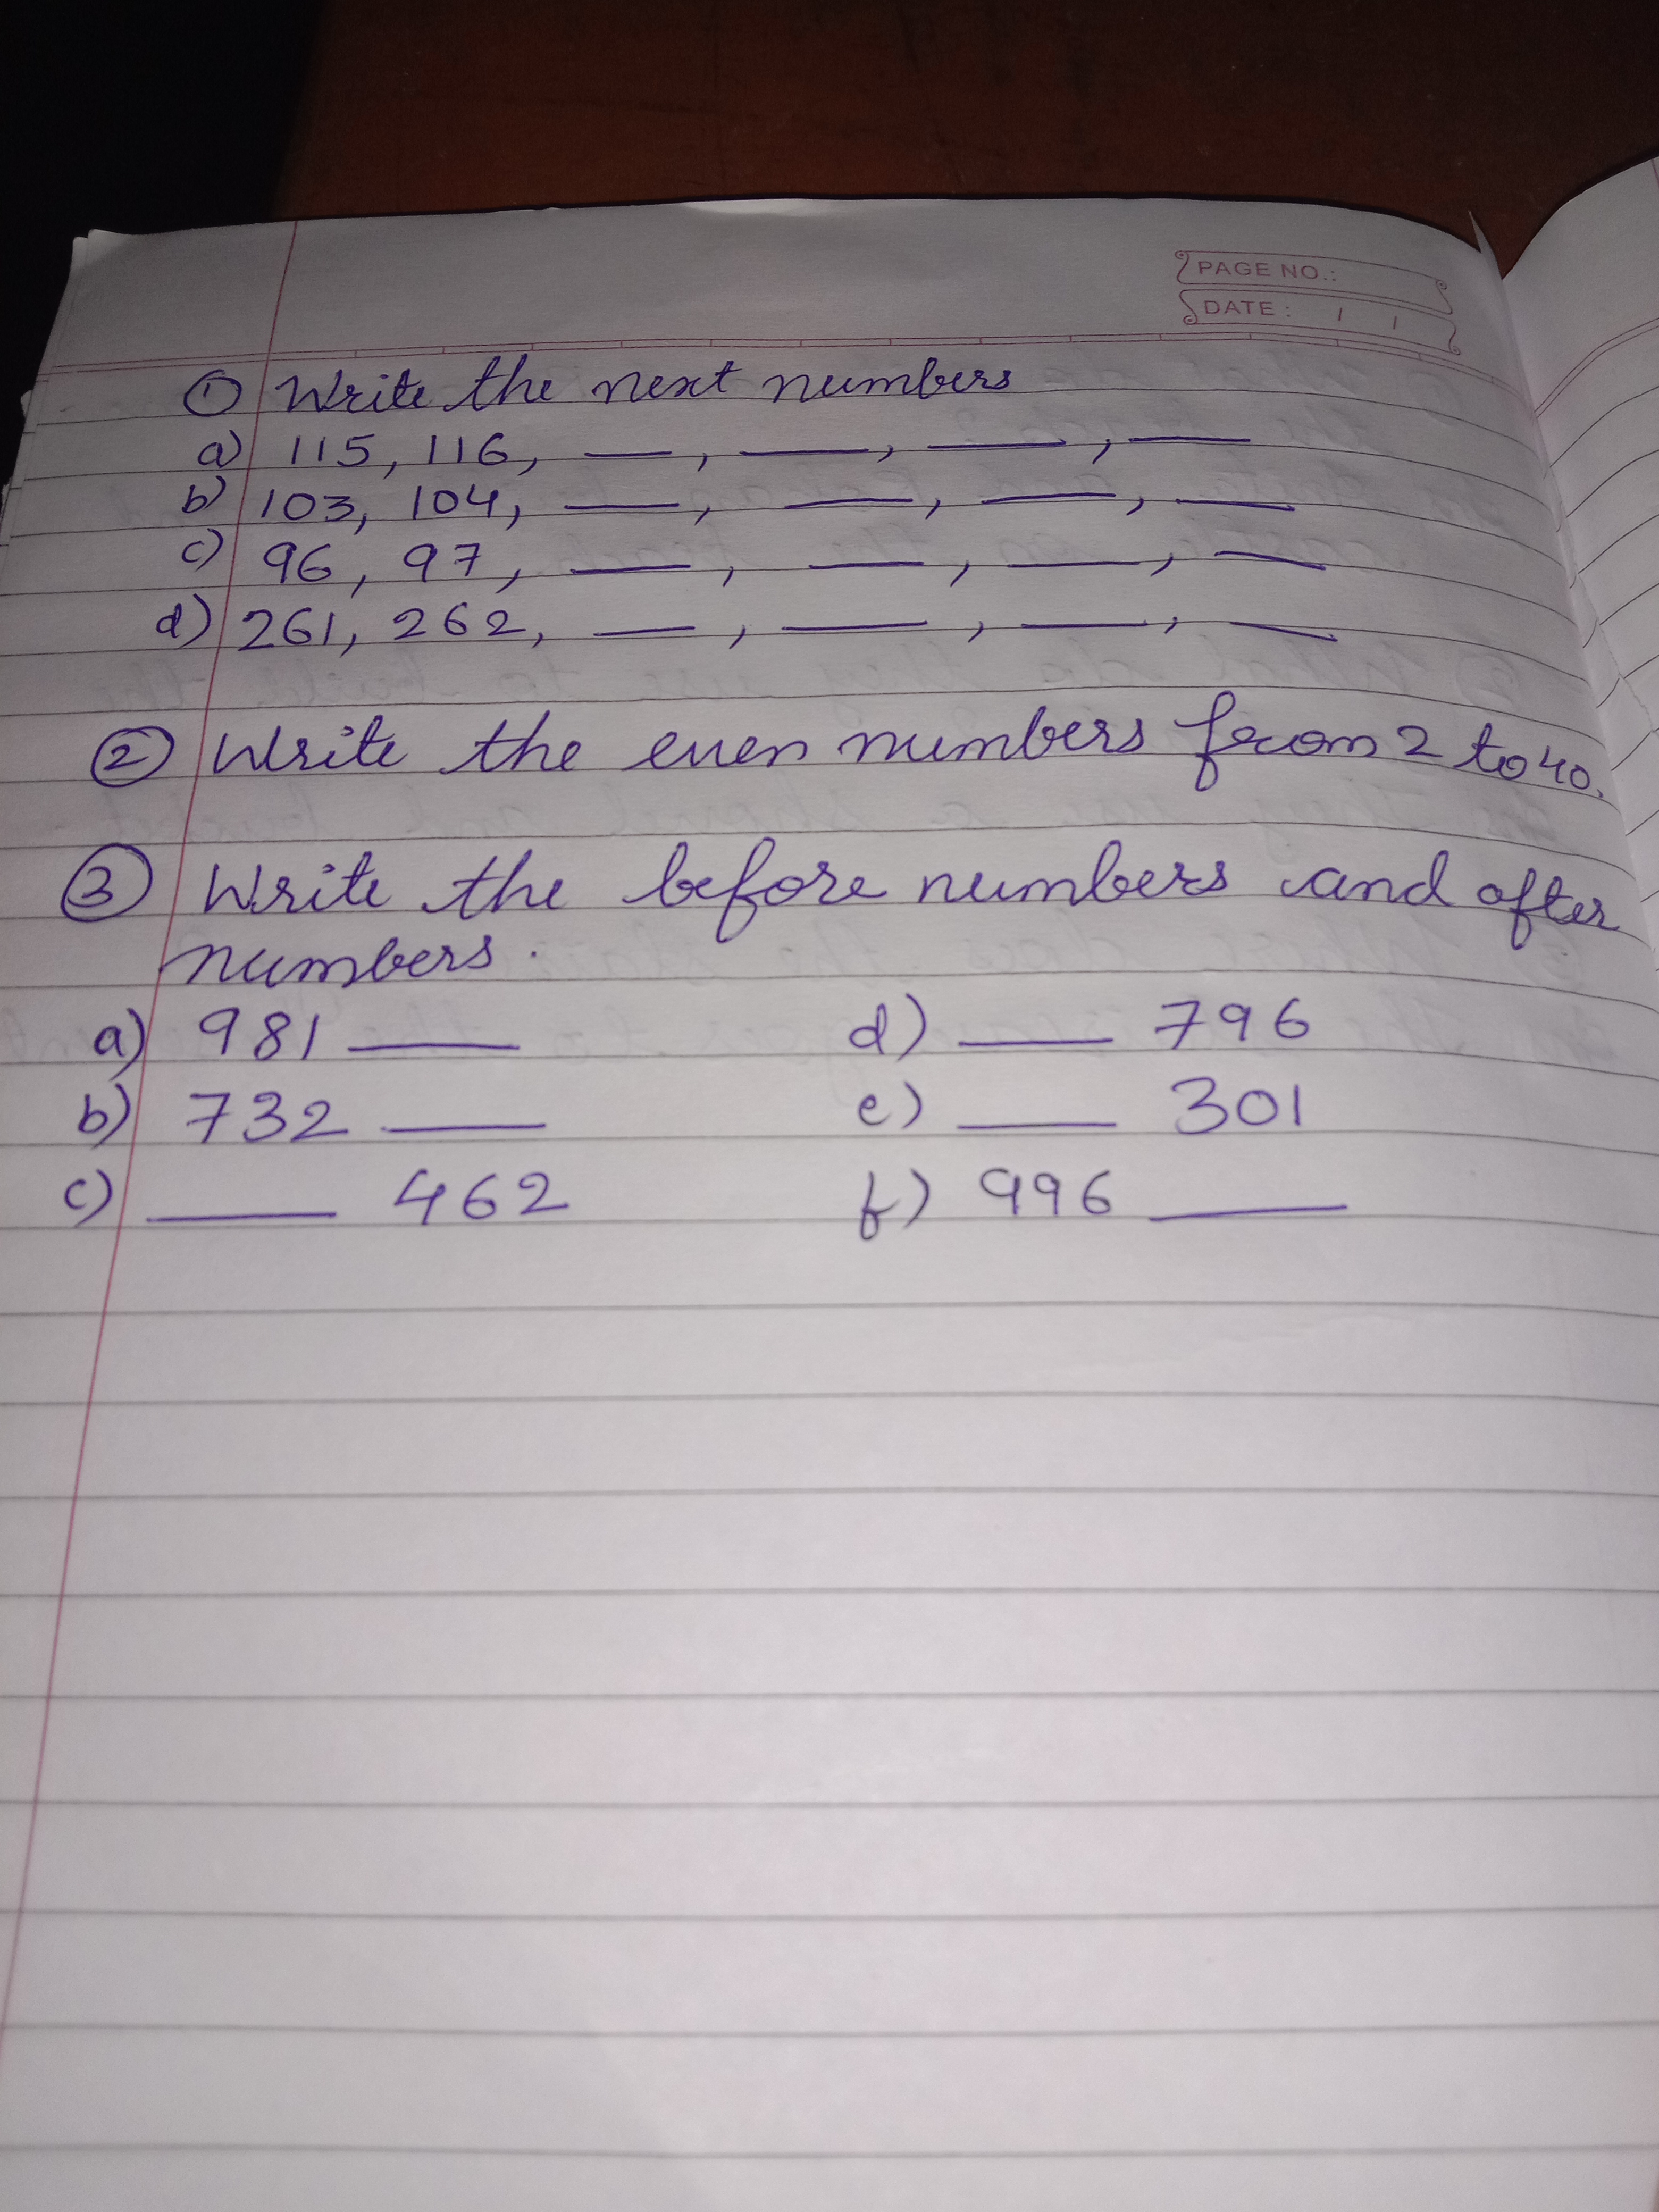 PAGE NO.:
DATE : / /
① Write the next numbers
a) 115, 116, ___, ___, ___, ___
b) 103, 104, ___, ___, ___, ___
c) 96, 97, ___, ___, ___, ___
d) 261, 262, ___, ___, ___, ___
② Write the even numbers from 2 to 40.
③ Write the before numbers and after
numbers.
a) 981 ___ d) ___ 796
b) 732 ___ e) ___ 301
c) ___ 462 f) 996 ___